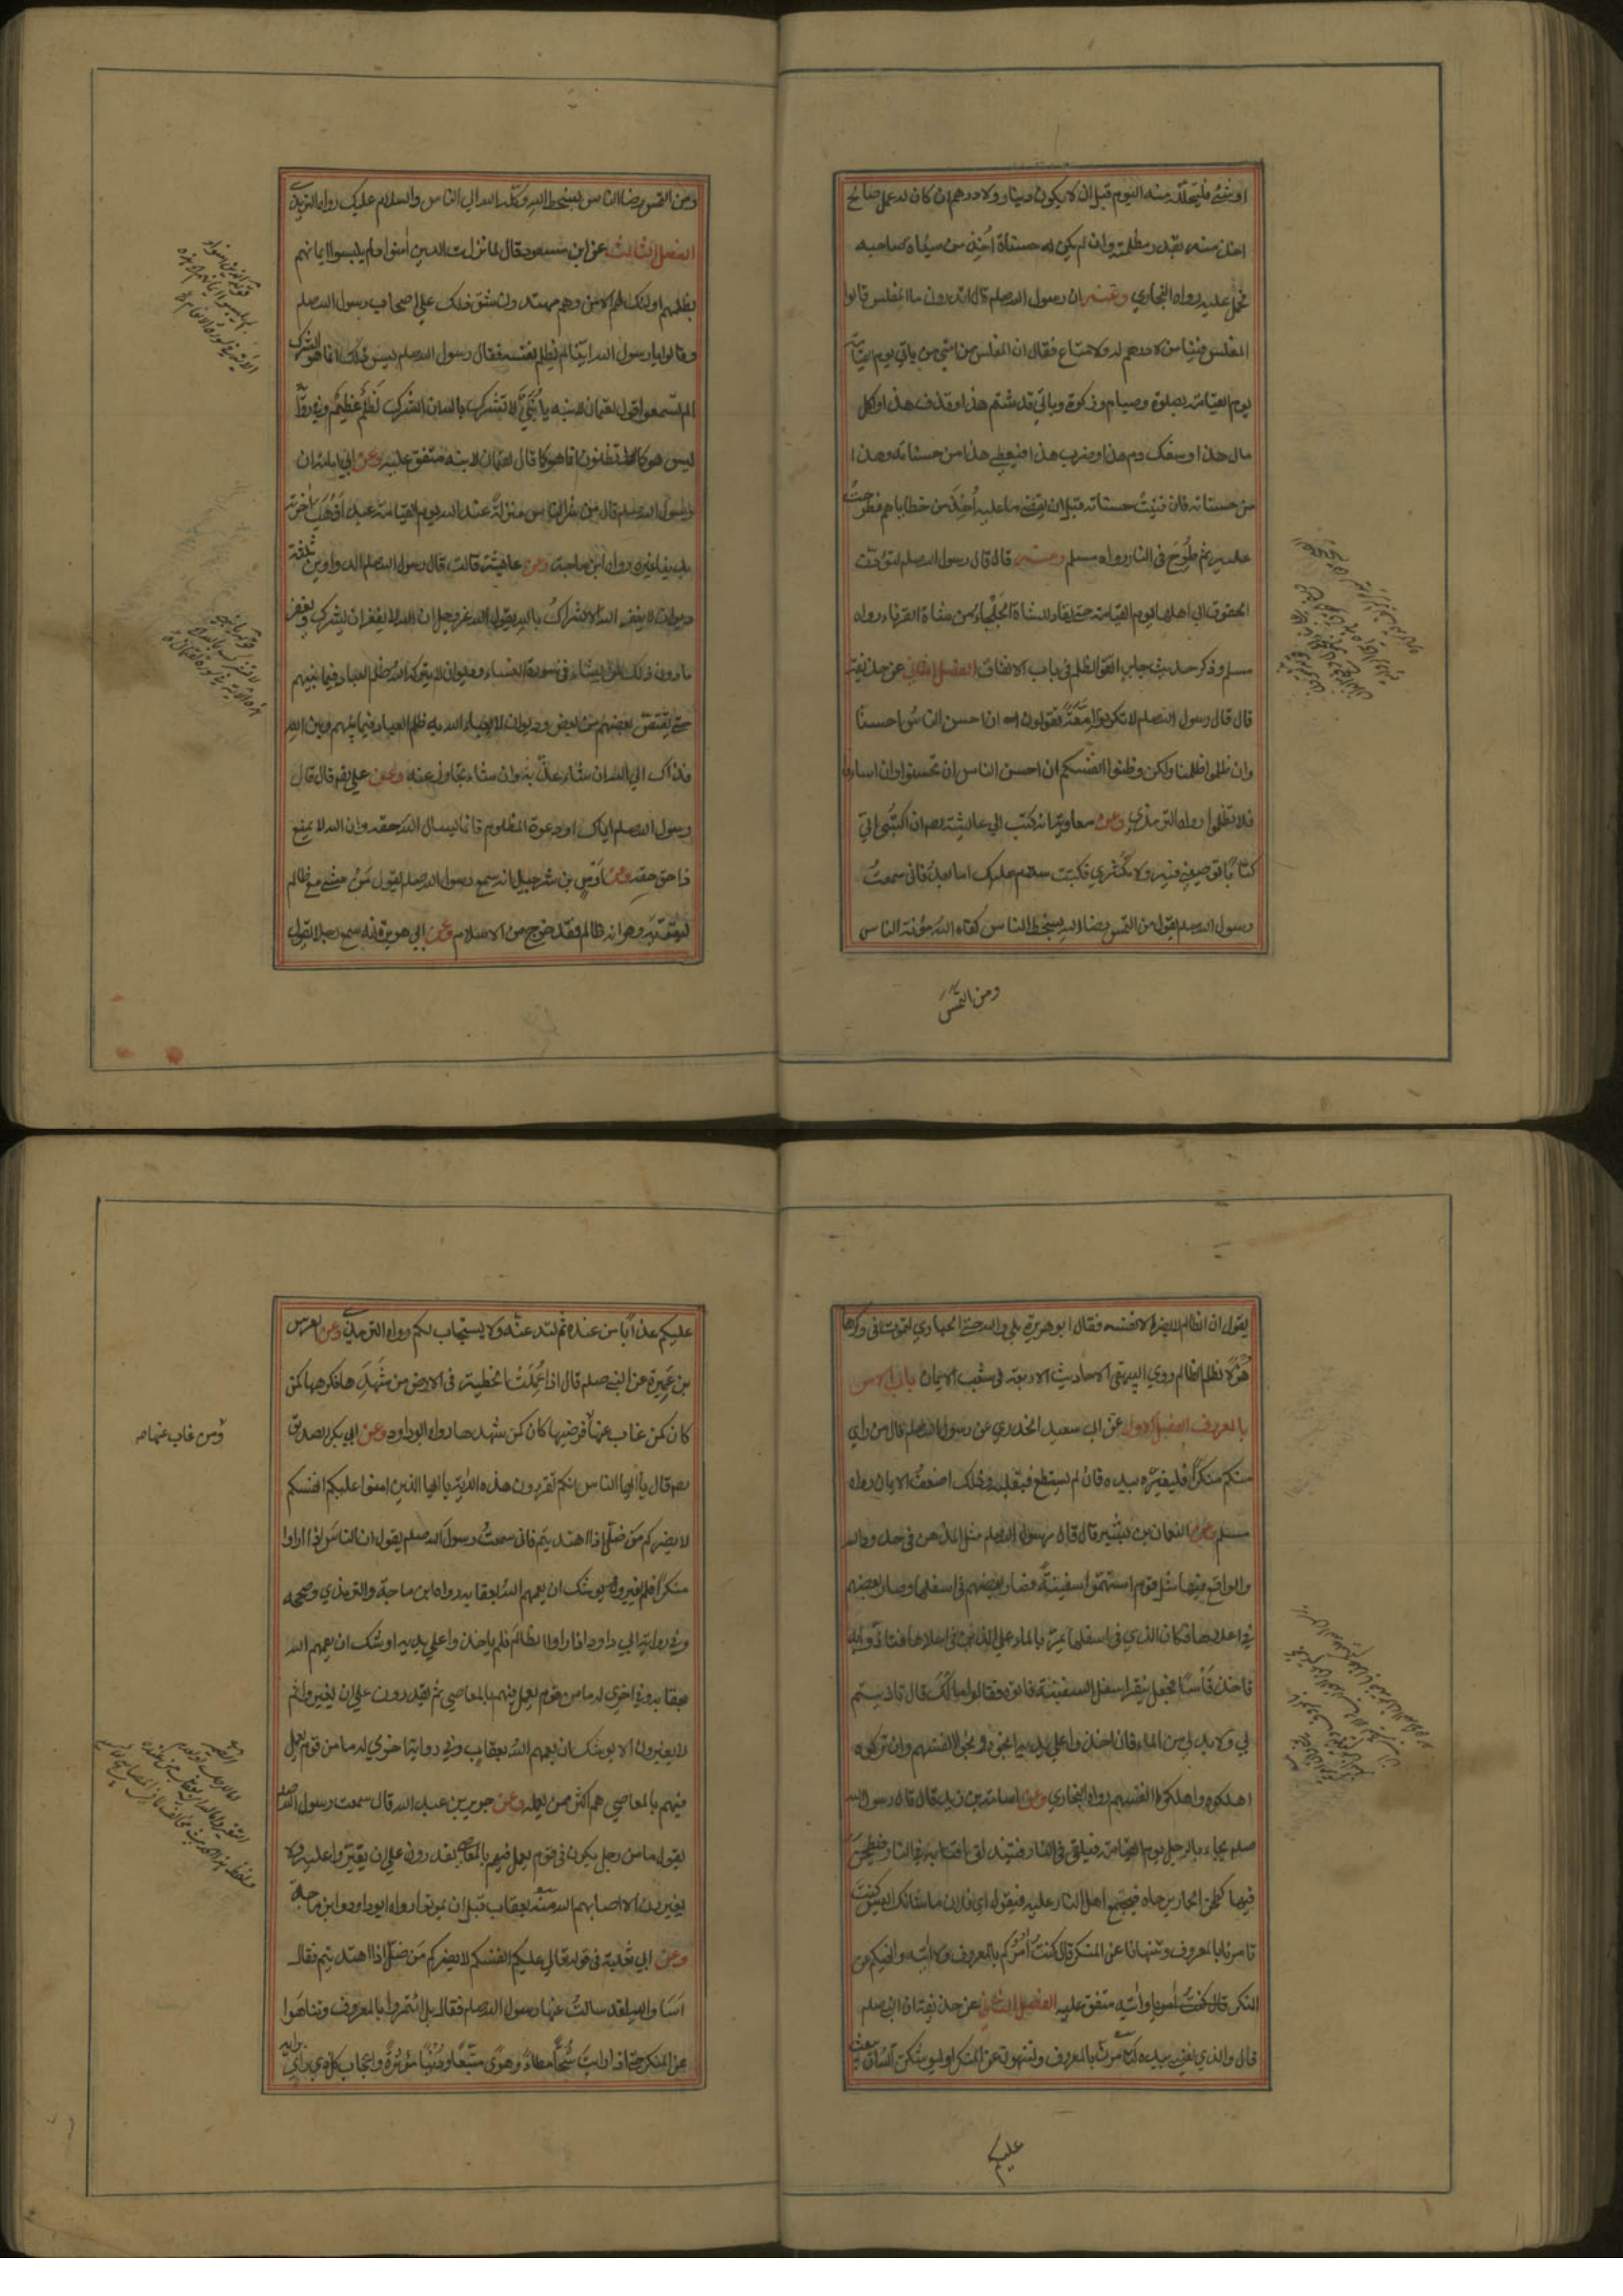 او شئ فليتحلله منه اليوم قبل ان لا يكون دينار ولا درهم ان كان له عمل صالح
اخذ منه بقدر مظلمته وان لم يكن له حسنات أخذ من سيئات صاحبه
فحمل عليه رواه البخاري وعنه ان رسول الله صلعم قال اتدرون ما المفلس قالوا
المفلس فينا من لا درهم له ولا متاع فقال ان المفلس من امتي من ياتي يوم القيامة
يوم القيامة بصلوة وصيام وزكوة وياتي قد شتم هذا وقذف هذا واكل
مال هذا وسفك دم هذا وضرب هذا فيعطي هذا من حسناته وهذا
من حسناته فان فنيت حسناته قبل ان يقضي ما عليه أخذ من خطاياهم فطرحت
عليه ثم طرح في النار رواه مسلم وعنه قال قال رسول الله صلعم لتؤدن
الحقوق الي اهلها يوم القيامة حتى يقاد للشاة الجلحاء من الشاة القرناء رواه
مسلم وذكر حديث جابر اتقوا الظلم في باب الانفاق الفصل الثاني عن حذيفة
قال قال رسول الله صلعم لا تكونوا امعة تقولون ان احسن الناس احسنا
وان ظلموا ظلمنا ولكن وطنوا انفسكم ان احسن الناس ان تحسنوا وان اساوا
فلا تظلموا رواه الترمذي وعن معاوية انه كتب الي عائشة رضه ان اكتبي الي
كتابا توصيني فيه ولا تكثري فكتبت سلام عليك اما بعد فاني سمعت
رسول الله صلعم يقول من التمس رضا الله بسخط الناس كفاه الله مؤنة الناس
ومن التمس
ومن التمس رضا الناس بسخط الله وكله الله الي الناس والسلام عليك رواه الترمذي
الفصل الثالث عن ابن مسعود قال لما نزلت الذين امنوا ولم يلبسوا ايمانهم
بظلمهم اولئك لهم الامن وهم مهتدون شق ذلك علي اصحاب رسول الله صلعم
وقالوا يا رسول الله اينا لم يظلم نفسه فقال رسول الله صلعم ليس ذلك انما هو الشرك
الم تسمعوا قول لقمان لابنه يا بني لا تشرك بالله ان الشرك لظلم عظيم وفي رواية
ليس هو كما تظنون انما هو كما قال لقمان لابنه متفق عليه وعن ابي امامة ان
رسول الله صلعم قال من شر الناس منزلة عند الله يوم القيامة عبد أذهب اخرته
بدنيا غيره رواه ابن ماجة وعن عايشة قالت قال رسول الله صلعم الدواوين ثلثة
ديوان لا يغفر الله الاشراك بالله يقول الله عز وجل ان الله لا يغفر ان يشرك به ويغفر
ما دون ذلك لمن يشاء في سورة النساء وديوان لا يتركه الله ظلم العباد فيما بينهم
حتى يقتص بعضهم من بعض وديوان لا يعباء الله به ظلم العباد فيما بينهم وبين الله
فذاك الي الله ان شاء عذبه وان شاء تجاوز عنه وعن علي رضه قال قال
رسول الله صلعم اياك ودعوة المظلوم فانما يسال الله حقه وان الله لا يمنع
ذا حق حقه وعن اوس بن شرحبيل انه سمع رسول الله صلعم يقول من مشي مع ظالم
ليقويه وهو انه ظالم فقد خرج من الاسلام وعن ابي هريرة انه سمع رجلا يقول
يقول ان الظالم لا يضر الا نفسه فقال ابو هريرة بلي والله حتى الحباري لتموت في وكرها
هزلا لظلم الظالم روي البيهقي الاحاديث الاربعة في شعب الايمان باب الامر
بالمعروف الفصل الاول عن ابي سعيد الخدري عن رسول الله صلعم قال من راي
منكم منكرا فليغيره بيده فان لم يستطع فبقلبه وذلك اضعف الايمان رواه
مسلم وعن النعمان بن بشير قال قال رسول الله صلعم مثل المدهن في حدود الله
والواقع فيها مثل قوم استهموا سفينة فصار بعضهم في اسفلها وصار بعضهم
في اعلاها فكان الذي في اسفلها يمر بالماء علي الذين في اعلاها فتاذوا به
فاخذ فأسا فجعل ينقر اسفل السفينة فاتوه فقالوا مالك قال تاذيتم
بي ولا بد لي من الماء فان اخذوا علي يديه انجوه ونجوا انفسهم وان تركوه
اهلكوه واهلكوا انفسهم رواه البخاري وعن اسامة بن زيد قال قال رسول الله
صلعم يجاء بالرجل يوم القيامة فيلقى في النار فتندلق اقتابه في النار فيطحن
فيها كطحن الحمار برحاه فيجتمع اهل النار عليه فيقولون اي فلان ما شانك اليس كنت
تامرنا بالمعروف وتنهانا عن المنكر قال كنت أمركم بالمعروف ولا آتيه وانهيكم عن
المنكر وآتيه متفق عليه الفصل الثاني عن حذيفة ان النبي صلعم
قال والذي نفسي بيده لتامرن بالمعروف ولتنهون عن المنكر او ليوشكن الله ان يبعث
عليكم
عليكم عذابا من عنده ثم لتدعنه ولا يستجاب لكم رواه الترمذي وعن العرس
بن عميرة عن النبي صلعم قال اذا عملت الخطيئة في الارض من شهدها فكرهها كمن
كان كمن غاب عنها فرضيها كان كمن شهدها رواه ابو داود وعن ابي بكر الصديق
رضه قال يا ايها الناس انكم تقرءون هذه الاية يا ايها الذين امنوا عليكم انفسكم
لا يضركم من ضل اذا اهتديتم فاني سمعت رسول الله صلعم يقول ان الناس اذا راوا
منكرا فلم يغيروه يوشك ان يعمهم الله بعقابه رواه ابن ماجة والترمذي وصححه
وفي رواية ابي داود اذا راوا الظالم فلم ياخذوا علي يديه اوشك ان يعمهم الله
بعقابه وفي اخري له ما من قوم يعمل فيهم بالمعاصي ثم يقدرون علي ان يغيروا ثم
لا يغيرون الا يوشك ان يعمهم الله بعقاب وفي رواية اخري له ما من قوم يعمل
فيهم بالمعاصي هم اكثر ممن يعمله وعن جرير بن عبد الله قال سمعت رسول الله صلعم
يقول ما من رجل يكون في قوم يعمل فيهم بالمعاصي يقدرون علي ان يغيروا عليه ولا
يغيرون الا اصابهم الله منه بعقاب قبل ان يموتوا رواه ابو داود وابن ماجة
وعن ابي ثعلبة في قوله تعالي عليكم انفسكم لا يضركم من ضل اذا اهتديتم فقال
اما والله لقد سالت عنها رسول الله صلعم فقال بل ائتمروا بالمعروف وتناهوا
عن المنكر حتى اذا رايت شحا مطاعا وهوى متبعا ودنيا مؤثرة واعجاب كل ذي راي برايه
ومن غاب عنها صه